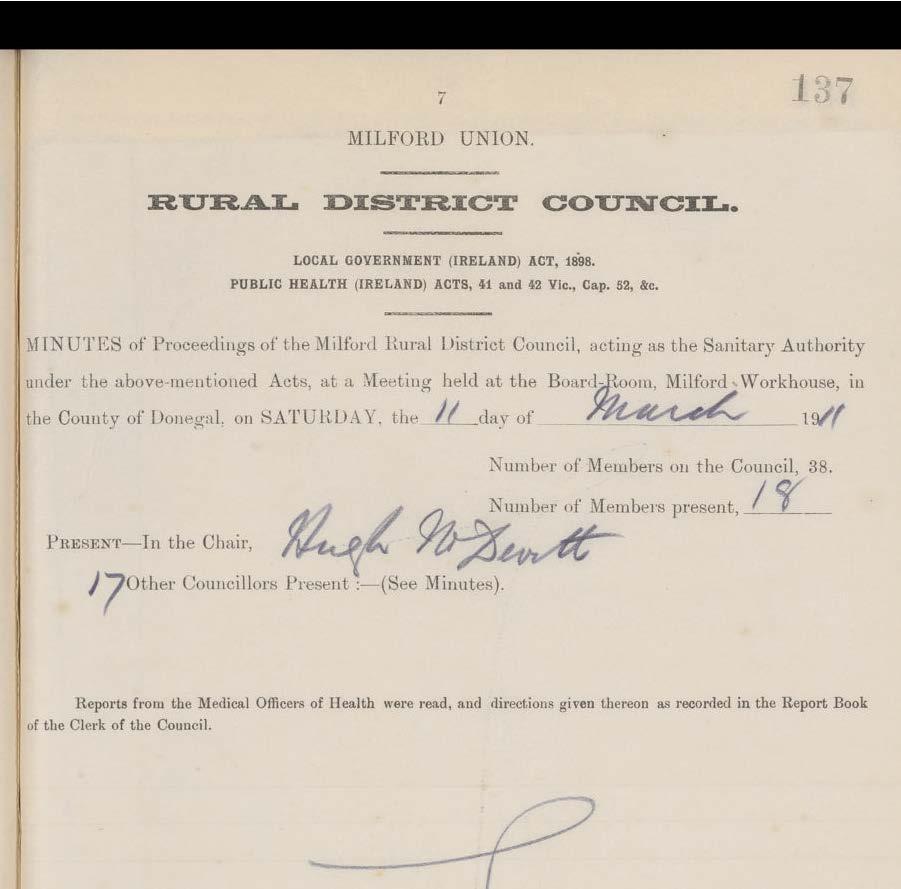 137
7
MILFORD UNION.
RURAL DISTRICT COUNCIL.
LOCAL GOVERNMENT (IRELAND) ACT, 1898.
PUBLIC HEALTH (IRELAND) ACTS, 41 and 42 Vic., Cap. 52, &c.
MINUTES of Proceedings of the Milford Rural District Council, acting as the Sanitary Authority
under the above-mentioned Acts, at a Meeting held at the Board-Room, Milford Workhouse, in
the County of Donegal, on SATURDAY, the 11 day of March 1911
Number of Members on the Council, 38.
Number of Members present, 18
PRESENT—In the Chair, Hugh McDevitt
17 Other Councillors Present :—(See Minutes).
Reports from the Medical Officers of Health were read, and directions given thereon as recorded in the Report Book
of the Clerk of the Council.